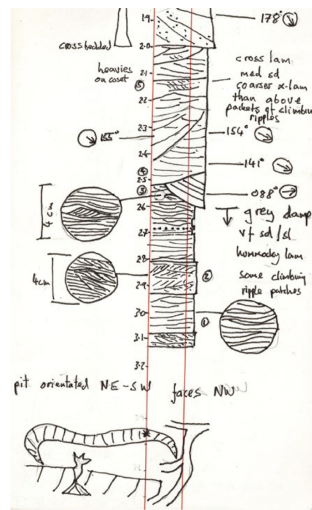 1.9
178°
cross bedded
2.0
cross lam
med sd
coarser x-lam
than above
packets of climbing
ripples
heavies
on coset
2.1
⑤
2.2
2.3
155°
154°
2.4
④
141°
2.5
③
088°
4 cm
2.6
grey damp
vf sd/sl
2.7
hummocky lam
2.8
4cm
②
some climbing
ripple patches
2.9
3.0
①
3.1
3.2
pit orientated NE-SW faces NW